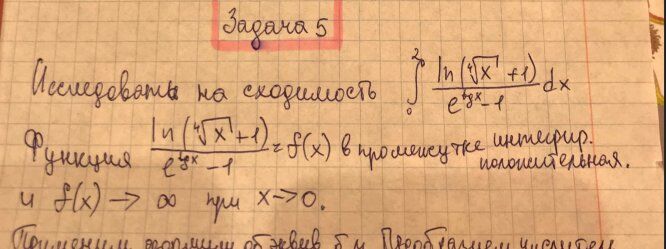 Задача 5
Исследовать на сходимость ∫₀² ln(∜x +1)/(e^(tg x) -1) dx
Функция ln(∜x +1)/(e^(tg x) -1) = f(x) в промежутке интегрир. положительная.
и f(x) → ∞ при x→0.
Применим